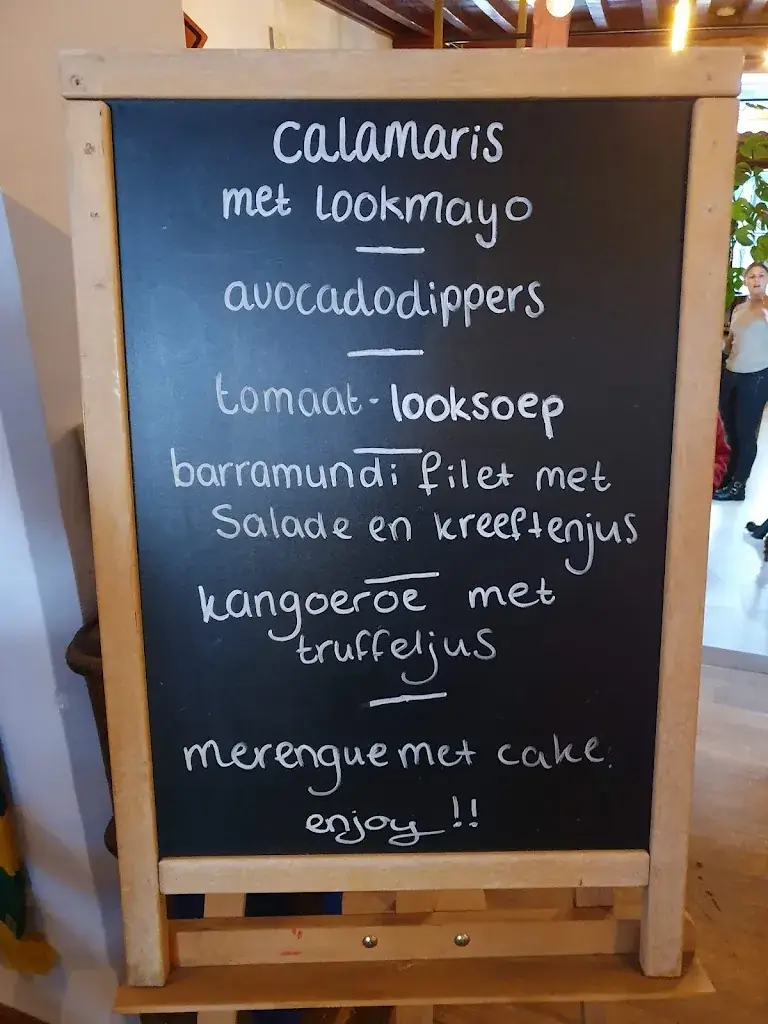 calamaris
met lookmayo
avocadodippers
tomaat-looksoep
barramundi filet met
Salade en kreeftenjus
kangoeroe met
truffeljus
merengue met cake.
enjoy !!